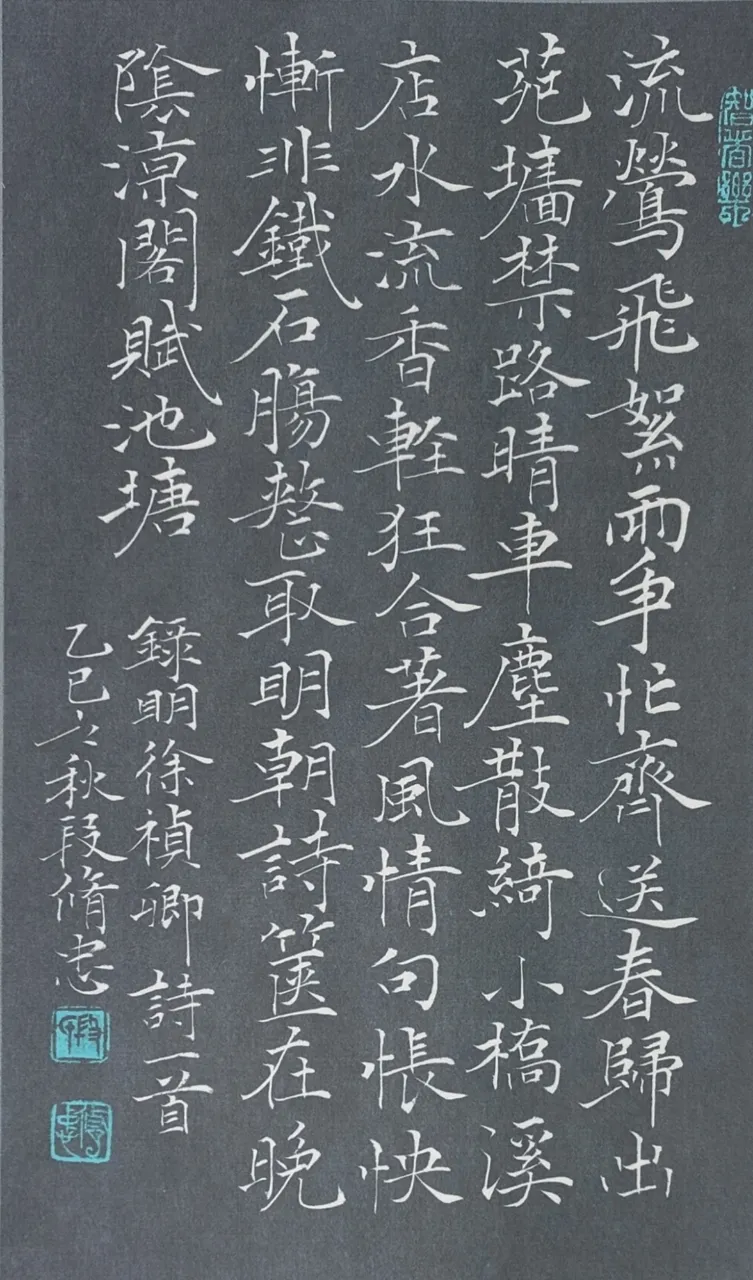 流鶯飛絮兩爭忙齊送春歸出
苑墻禁路晴車塵散綺小橋溪
店水流香輕狂合著風情句悵怏
慚非鐵石腸整取明朝詩篋在晚
陰涼閣賦池塘
錄明徐禎卿詩一首
乙巳之秋段脩忠